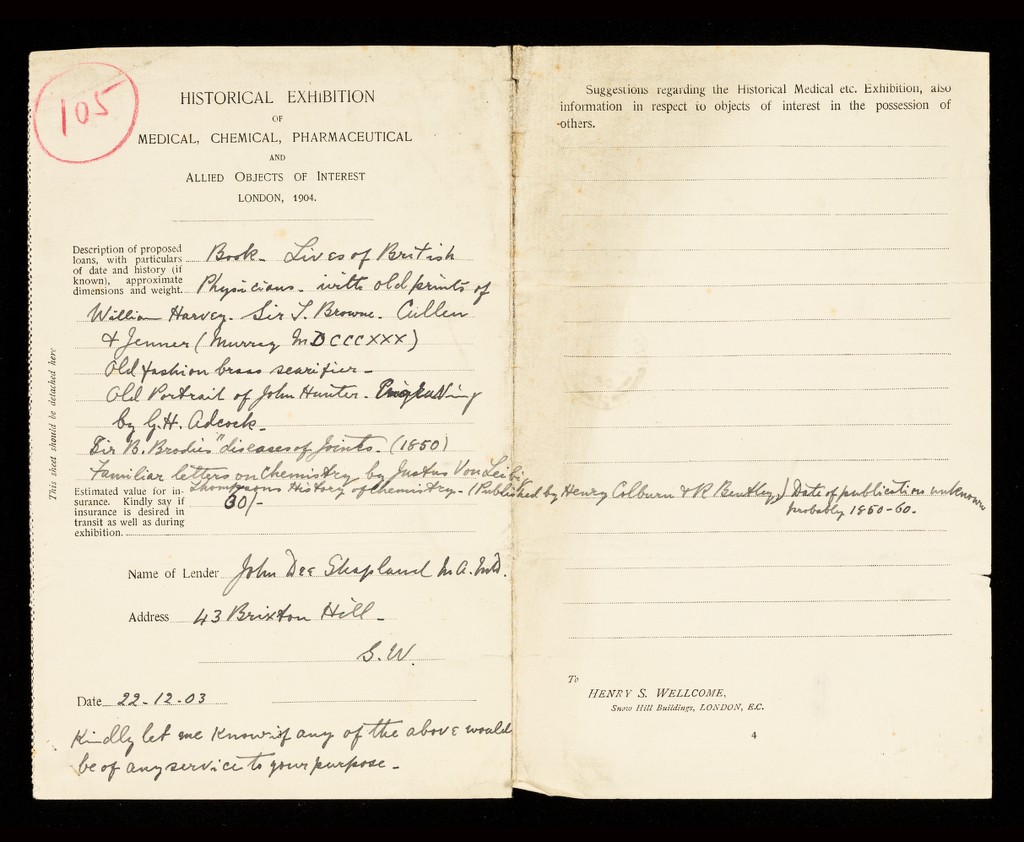 105
HISTORICAL EXHIBITION
OF
MEDICAL, CHEMICAL, PHARMACEUTICAL
AND
ALLIED OBJECTS OF INTEREST
LONDON, 1904.
Description of proposed
loans, with particulars
of date and history (if
known), approximate
dimensions and weight.
Book - Lives of British
Physicians - with old prints of
William Harvey. Sir T. Browne. Cullen
& Jenner (Murray MDCCCXXX)
Old fashion brass scarifier -
Old Portrait of John Hunter - Engraving
by G.H. Adcock -
Sir B. Brodies "diseases of Joints - (1850)
Familiar letters on Chemistry by Justus Von Leibig
Thompsons History of Chemistry - (Published by Henry Colburn & R Bentley) Date of publication unknown
probably 1850-60.
Estimated value for in-
surance. Kindly say if
insurance is desired in
transit as well as during
exhibition.
30/-
Name of Lender John Dee Shapland M.A. M.D.
Address 43 Brixton Hill -
S.W.
Date 22-12-03
Kindly let me know if any of the above would
be of any service to your purpose -
This sheet should be detached here
Suggestions regarding the Historical Medical etc. Exhibition, also
information in respect to objects of interest in the possession of
others.
To
HENRY S. WELLCOME,
Snow Hill Buildings, LONDON, E.C.
4